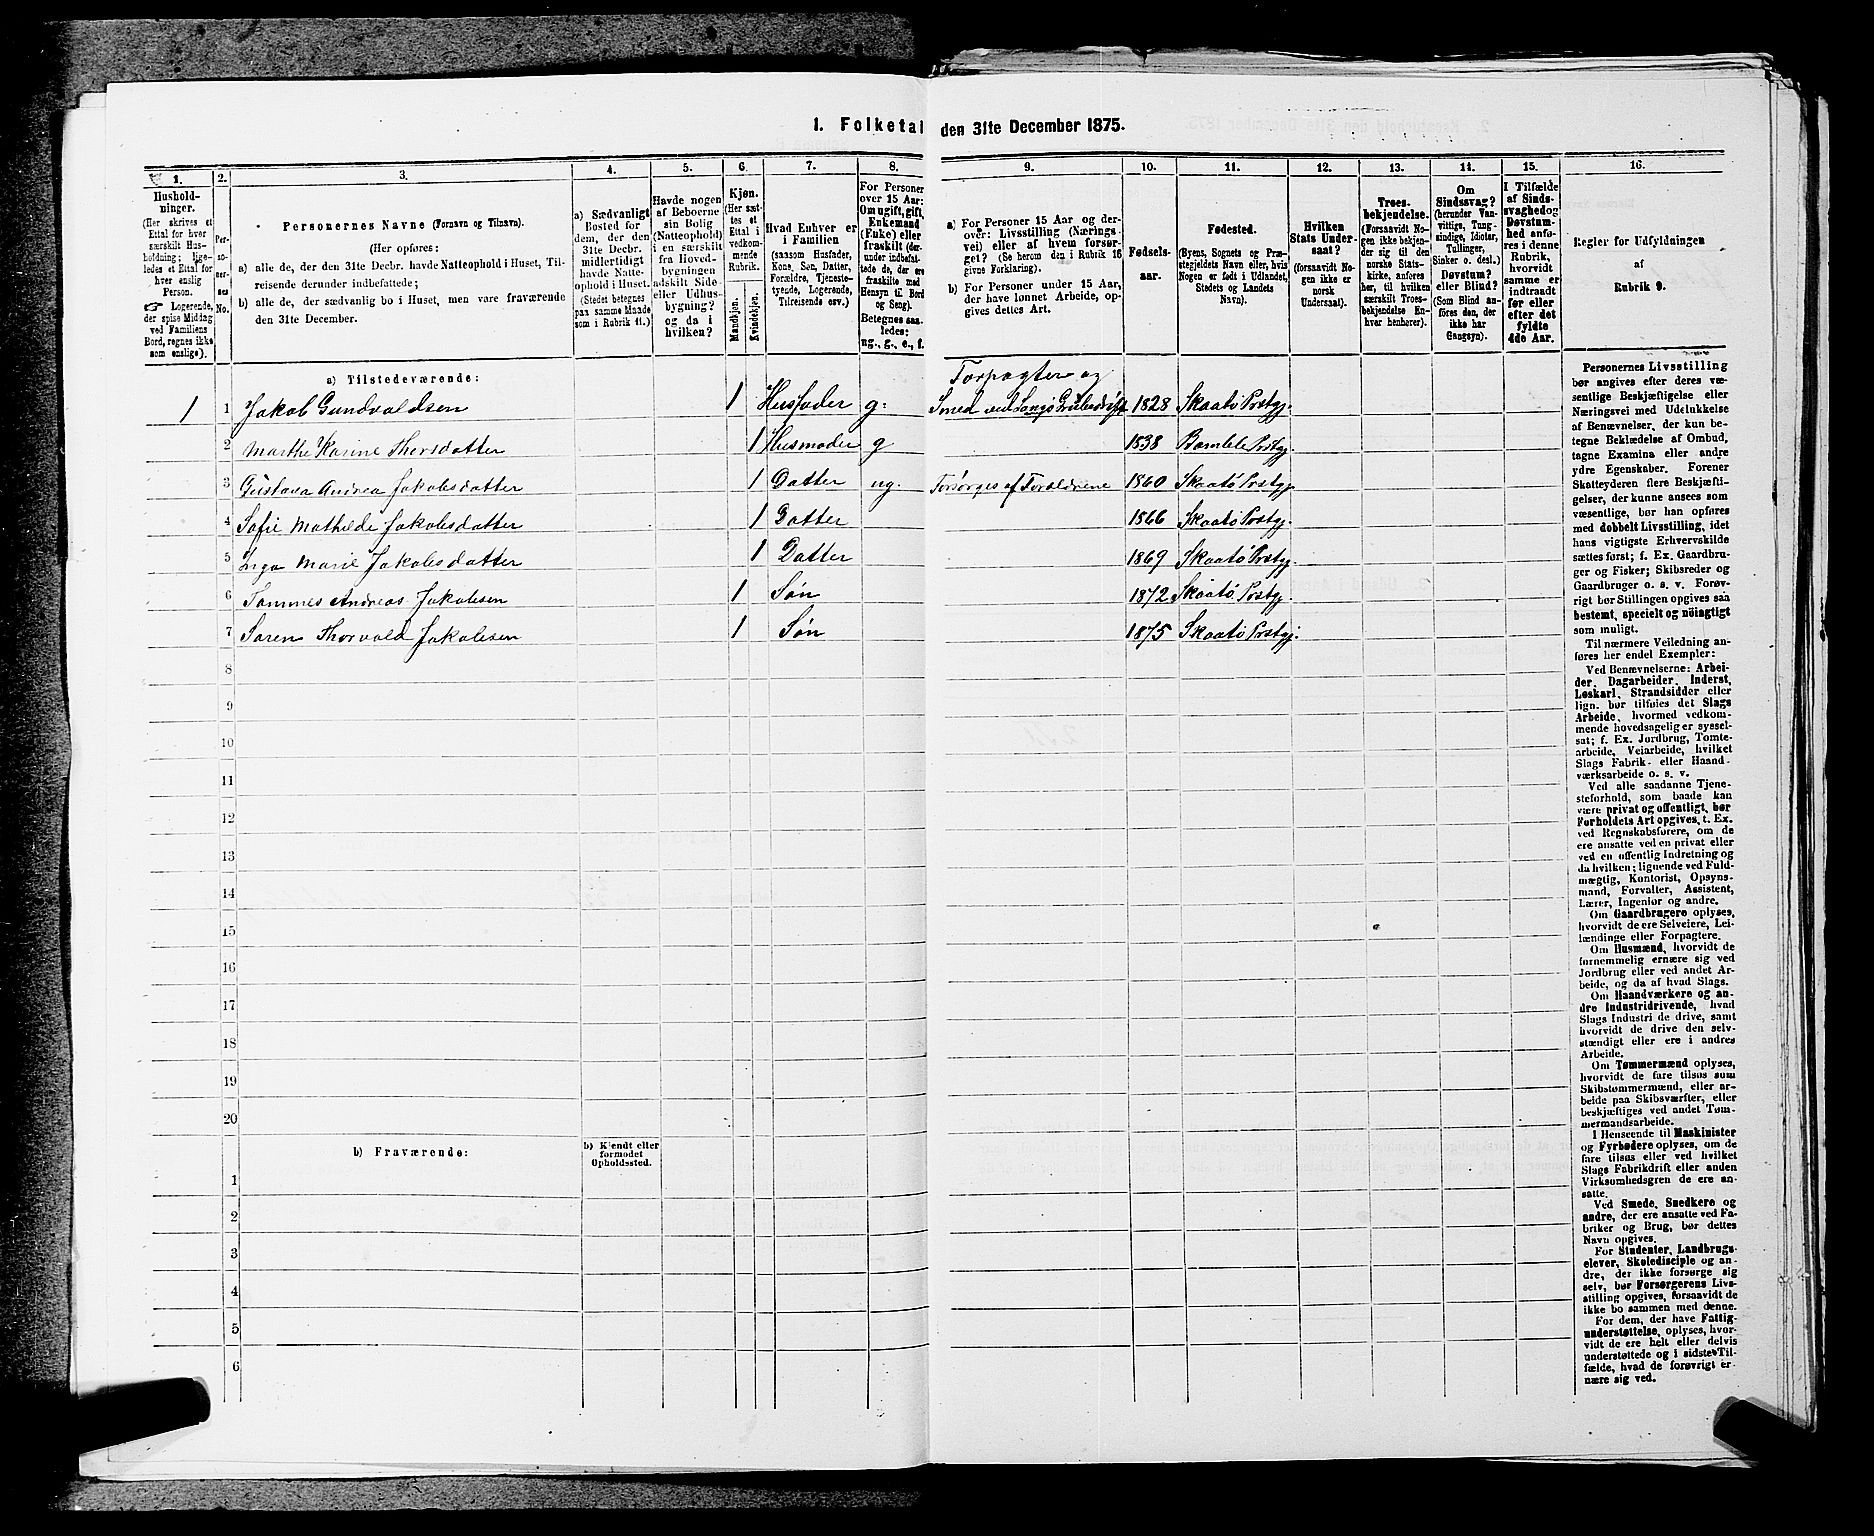 1. Folketal den 31te December 1875.
1.
2.
3.
4.
5.
6.
7.
8.
9.
10.
11.
12.
13.
14.
15.
16.
Hushold-
ninger.
(Her skrives et
Ettal for hver
særskilt Hus-
holdning; lige-
ledes et Ettal for
hver enslig
Person.
☞ Logerende,
der spise Middag
ved Familiens
Bord, regnes ikke
som enslige).
Per-
so-
ner-
nes
No.
Personernes Navne (Fornavn og Tilnavn).
(Her opføres:
a) alle de, der den 31te Decbr. havde Natteophold i Huset, Til-
reisende derunder indbefattede;
b) alle de, der sædvanlig bo i Huset, men vare fraværende
den 31te December.
a) Sædvanligt
Bosted for
dem, der den
31te Decbr.
midlertidigt
havde Natte-
ophold i Huset.
(Stedet betegnes
paa samme Maade
som i Rubrik 11.)
Havde nogen
af Beboerne
sin Bolig
(Natteophold)
i en særskilt
fra Hoved-
bygningen
adskilt Side-
eller Udhus-
bygning?
og da i
hvilken?
Kjøn.
(Her sæt-
tes et
Ettal i
vedkom-
mende
Rubrik.
Mandkjøn.
Kvindekjøn.
Hvad Enhver er
i Familien
(saasom Husfader,
Kone, Søn, Datter,
Forældre, Tjeneste-
tyende, Logerende,
Tilreisende osv.)
For Personer
over 15 Aar:
Om ugift, gift,
Enkemand
(Enke) eller
fraskilt (der-
under indbefat-
tede de, der ere
fraskilte med
Hensyn til Bord
og Seng).
Betegnes saa-
ledes:
ug., g., e., f.
a) For Personer 15 Aar og der-
over: Livsstilling (Nærings-
vei) eller af hvem forsør-
get? (Se herom den i Rubrik 16
givne Forklaring).
b) For Personer under 15 Aar,
der have lønnet Arbeide, op-
gives dettes Art.
Fødsels-
aar.
Fødested.
(Byens, Sognets og Præ-
stegjeldets Navn eller, hvis
Nogen er født i Udlandet,
Stedets og Landets
Navn).
Hvilken
Stats Under-
saat?
(forsaavidt No-
gen ikke er
norsk
Undersaat).
Troes-
bekjendelse.
(Forsaavidt No-
gen ikke bekjen-
der sig til den
norske Stats-
kirke, anføres
her, til hvilken
særskilt Troes-
bekjendelse En-
hver henhører).
Om
Sindssvag?
(herunder Van-
vittige, Tung-
sindige, Idioter,
Tullinger,
Sinker o. desl.)
Døvstum?
eller Blind?
(Som Blind an-
føres den, der
ikke har
Gangsyn).
I Tilfælde
af Sinds-
svaghed og
Døvstum-
hed anfø-
res i denne
Rubrik,
hvorvidt
samme er
indtraadt
før eller
efter det
fyldte
4de Aar.
Regler for Udfyldningen
af
Rubrik 9.
a) Tilstedeværende:
Forpagter og
1 1 Jakob Gundvaldsen 1 Husfader g: Smed ved Langø Grubedrift 1828 Skaatø Prstgj.
2 Marthe Karine Thorsdatter 1 Husmoder g 1838 Bamble Prstgj.
3 Gustava Andrea Jakobsdatter 1 Datter ug. Forsørges af Forældrene 1860 Skaatø Prstgj.
4 Sofie Mathilde Jakobsdatter 1 Datter 1866 Skaatø Prstgj.
5 Inga Marie Jakobsdatter 1 Datter 1869 Skaatø Prstgj.
6 Tommes Andreas Jakobsen 1 Søn 1872 Skaatø Prstgj.
7 Søren Thorvald Jakobsen 1 Søn 1875 Skaatø Prstgj.
8
9
10
11
12
13
14
15
16
17
18
19
20
b) Fraværende:
b) Kjendt eller
formodet
Opholdssted.
1
2
3
4
5
6
Personernes Livsstilling
bør angives efter deres væ-
sentlige Beskjæftigelse eller
Næringsvei med Udelukkelse
af Benævnelser, der kun be-
tegne Beklædelse af Ombud,
tagne Examina eller andre
ydre Egenskaber. Forener
Skatteyderen flere Beskjæfti-
gelser, der kunne ansees som
væsentlige, bør han opføres
med dobbelt Livsstilling, idet
hans vigtigste Erhvervskilde
sættes først; f. Ex. Gaardbru-
ger og Fisker; Skibsreder og
Gaardbruger o. s. v. Forøv-
rigt bør Stillingen opgives saa
bestemt, specielt og nöiagtigt
som muligt.
Til nærmere Veiledning an-
føres her endel Exempler:
Ved Benævnelserne: Arbei-
der, Dagarbeider, Inderst,
Løskarl, Strandsidder eller
lign. bør tilføies det Slags
Arbeide, hvormed vedkom-
mende hovedsagelig er syssel-
sat; f. Ex. Jordbrug, Tomte-
arbeide, Veiarbeide, hvilket
Slags Fabrik- eller Haand-
værksarbeide o. s. v.
Ved alle saadanne Tjene-
steforhold, som baade kan
være privat og offentligt, bør
Forholdets Art opgives, t. Ex.
ved Regnskabsførere, om de
ere ansatte ved en privat eller
ved en offentlig Indretning og
da hvilken; lignende ved Fuld-
mægtig, Kontorist, Opsyns-
mand, Forvalter, Assistent,
Lærer, Ingeniør og andre.
Om Gaardbrugere oplyses,
hvorvidt de ere Selveiere, Lei-
lændinge eller Forpagtere.
Om Husmænd, hvorvidt de
fornemmelig ernære sig ved
Jordbrug eller ved andet Ar-
beide, og da af hvad Slags.
Om Haandværkere og an-
dre Industridrivende, hvad
Slags Industri de drive, samt
hvorvidt de drive den selv-
stændigt eller ere i andres
Arbeide.
Om Tømmermænd oplyses,
hvorvidt de fare tilsøs som
Skibstømmermænd, eller ar-
beide paa Skibsværfter, eller
beskjæftiges ved andet Tøm-
mermandsarbeide.
I Henseende til Maskinister
og Fyrbødere oplyses, om de
fare tilsøs eller ved hvilket
Slags Fabrikdrift eller anden
Virksomhedsgren de ere an-
satte.
Ved Smede, Snedkere og
andre, der ere ansatte ved Fa-
briker og Brug, bør dettes
Navn opgives.
For Studenter, Landbrugs-
elever, Skoledisciple og an-
dre, der ikke forsørge sig
selv, bør Forsørgerens Livs-
stilling opgives, forsaavidt de
ikke bo sammen med denne.
For dem, der have Fattig-
understøttelse, oplyses, hvor-
vidt de ere helt eller delvis
understøttede og i sidste Til-
fælde, hvad de forøvrigt er-
nære sig ved.